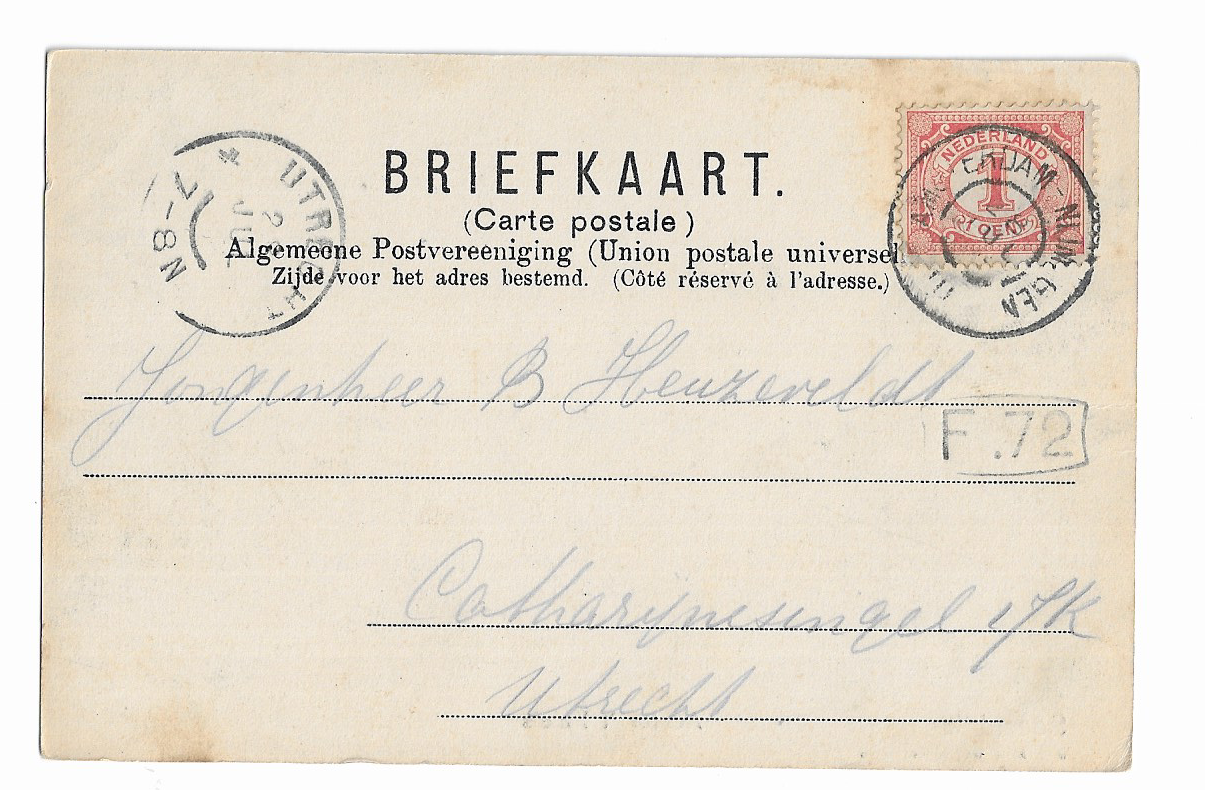 BRIEFKAART.
(Carte postale)
Algemeene Postvereeniging (Union postale universel
Zijde voor het adres bestemd. (Côté réservé à l'adresse.)
UTRECHT
JUL
7-8N
NEDERLAND
1
1 CENT
Jongenheer B Heuzeveldt
F.72
Catharijnesingel 17K
Utrecht